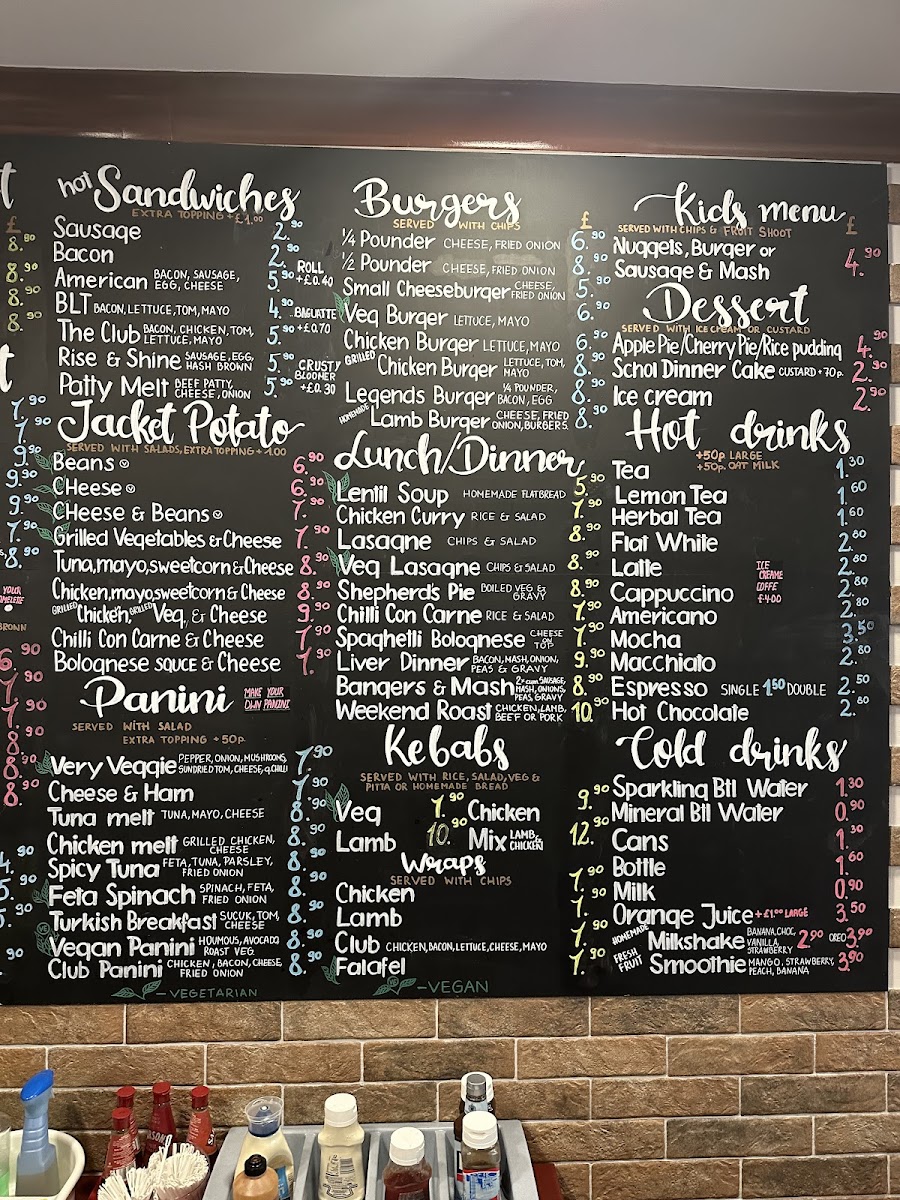 t
£
8.90
8.90
8.90
8.90
t
7.90
7.90
9.90
9.90
9.90
7.90
8.90
YOUR
OMELETTE
BROWN
6.90
7.90
7.90
8.90
8.90
8.90
4.90
5.90
5.90
.90
hot Sandwiches
EXTRA TOPPING + £1.00
Sausage 2.90
Bacon 2.90
American BACON, SAUSAGE, EGG, CHEESE 5.90
ROLL +£0.40
BLT BACON, LETTUCE, TOM, MAYO 4.90
BAGUETTE +£0.70
The Club BACON, CHICKEN, TOM, LETTUCE, MAYO 5.90
Rise & Shine SAUSAGE, EGG, HASH BROWN 5.90
CRUSTY BLOOMER +£0.30
Patty Melt BEEF PATTY, CHEESE, ONION 5.90
Jacket Potato
SERVED WITH SALADS, EXTRA TOPPING + 1.00
Beans V 6.90
CHeese V 6.90
CHeese & Beans V 7.90
Grilled Vegetables & CHeese 7.90
Tuna,mayo,sweetcorn & CHeese 8.90
Chicken,mayo,sweetcorn & Cheese 8.90
GRILLED Chicken, GRILLED Veg, & Cheese 9.90
Chilli Con Carne & Cheese 7.90
Bolognese sauce & Cheese 7.90
Panini
MAKE YOUR OWN PANINI
SERVED WITH SALAD
EXTRA TOPPING + 50p
Very Veggie PEPPER, ONION, MUSHROOMS, SUNDRIED TOM, CHEESE, & CHILLI 7.90
Cheese & Ham 7.90
Tuna melt TUNA, MAYO, CHEESE 8.90
Chicken melt GRILLED CHICKEN, CHEESE 8.90
Spicy Tuna FETA, TUNA, PARSLEY, FRIED ONION 8.90
Feta Spinach SPINACH, FETA, FRIED ONION 8.90
Turkish Breakfast SUCUK, TOM, CHEESE 8.90
Vegan Panini HOUMOUS, AVOCADO, ROAST VEG. 8.90
Club Panini CHICKEN, BACON, CHEESE, FRIED ONION 8.90
- VEGETARIAN
Burgers
SERVED WITH CHIPS £
1/4 Pounder CHEESE, FRIED ONION 6.90
1/2 Pounder CHEESE, FRIED ONION 8.90
Small Cheeseburger CHEESE, FRIED ONION 5.90
Veg Burger LETTUCE, MAYO 6.90
Chicken Burger LETTUCE, MAYO 6.90
GRILLED Chicken Burger LETTUCE, TOM, MAYO 8.90
Legends Burger 1/4 POUNDER, BACON, EGG 8.90
HOMEMADE Lamb Burger CHEESE, FRIED ONION, BURGERS. 8.90
Lunch/Dinner
Lentil Soup HOMEMADE FLATBREAD 5.90
Chicken Curry RICE & SALAD 7.90
Lasagne CHIPS & SALAD 8.90
Veg Lasagne CHIPS & SALAD 8.90
Shepherd's Pie BOILED VEG & GRAVY 8.90
Chilli Con Carne RICE & SALAD 7.90
Spaghetti Bolognese CHEESE ON TOP 7.90
Liver Dinner BACON, MASH, ONION, PEAS & GRAVY 9.90
Bangers & Mash 2x CUM. SAUSAGE, MASH, ONIONS, PEAS, GRAVY 8.90
Weekend Roast CHICKEN, LAMB, BEEF OR PORK 10.90
Kebabs
SERVED WITH RICE, SALAD, VEG &
PITTA OR HOMEMADE BREAD
Veg 7.90 Chicken 9.90
Lamb 10.90 Mix LAMB, CHICKEN 12.90
Wraps
SERVED WITH CHIPS
Chicken 7.90
Lamb 7.90
Club CHICKEN, BACON, LETTUCE, CHEESE, MAYO 7.90
Falafel 7.90
VE - VEGAN
Kids menu
SERVED WITH CHIPS & FRUIT SHOOT £
Nuggets, Burger or
Sausage & Mash 4.90
Dessert
SERVED WITH ICE CREAM OR CUSTARD
Apple Pie/Cherry Pie/Rice pudding 4.90
Schol Dinner Cake CUSTARD + 70p. 2.90
Ice cream 2.90
Hot drinks
+50p LARGE
+50p. OAT MILK
Tea 1.30
Lemon Tea 1.60
Herbal Tea 1.60
Flat White 2.80
Latte 2.80
ICE CREAME COFFE £4.00
Cappuccino 2.80
Americano 2.80
Mocha 3.50
Macchiato 2.80
Espresso SINGLE 1.50 DOUBLE 2.50
Hot Chocolate 2.80
Cold drinks
Sparkling Btl Water 1.30
Mineral Btl Water 0.90
Cans 1.30
Bottle 1.60
Milk 0.90
Orange Juice + £1.00 LARGE 3.50
HOMEMADE Milkshake BANANA, CHOC, VANILLA, STRAWBERRY 2.90 OREO 3.90
FRESH FRUIT Smoothie MANGO, STRAWBERRY, PEACH, BANANA 3.90